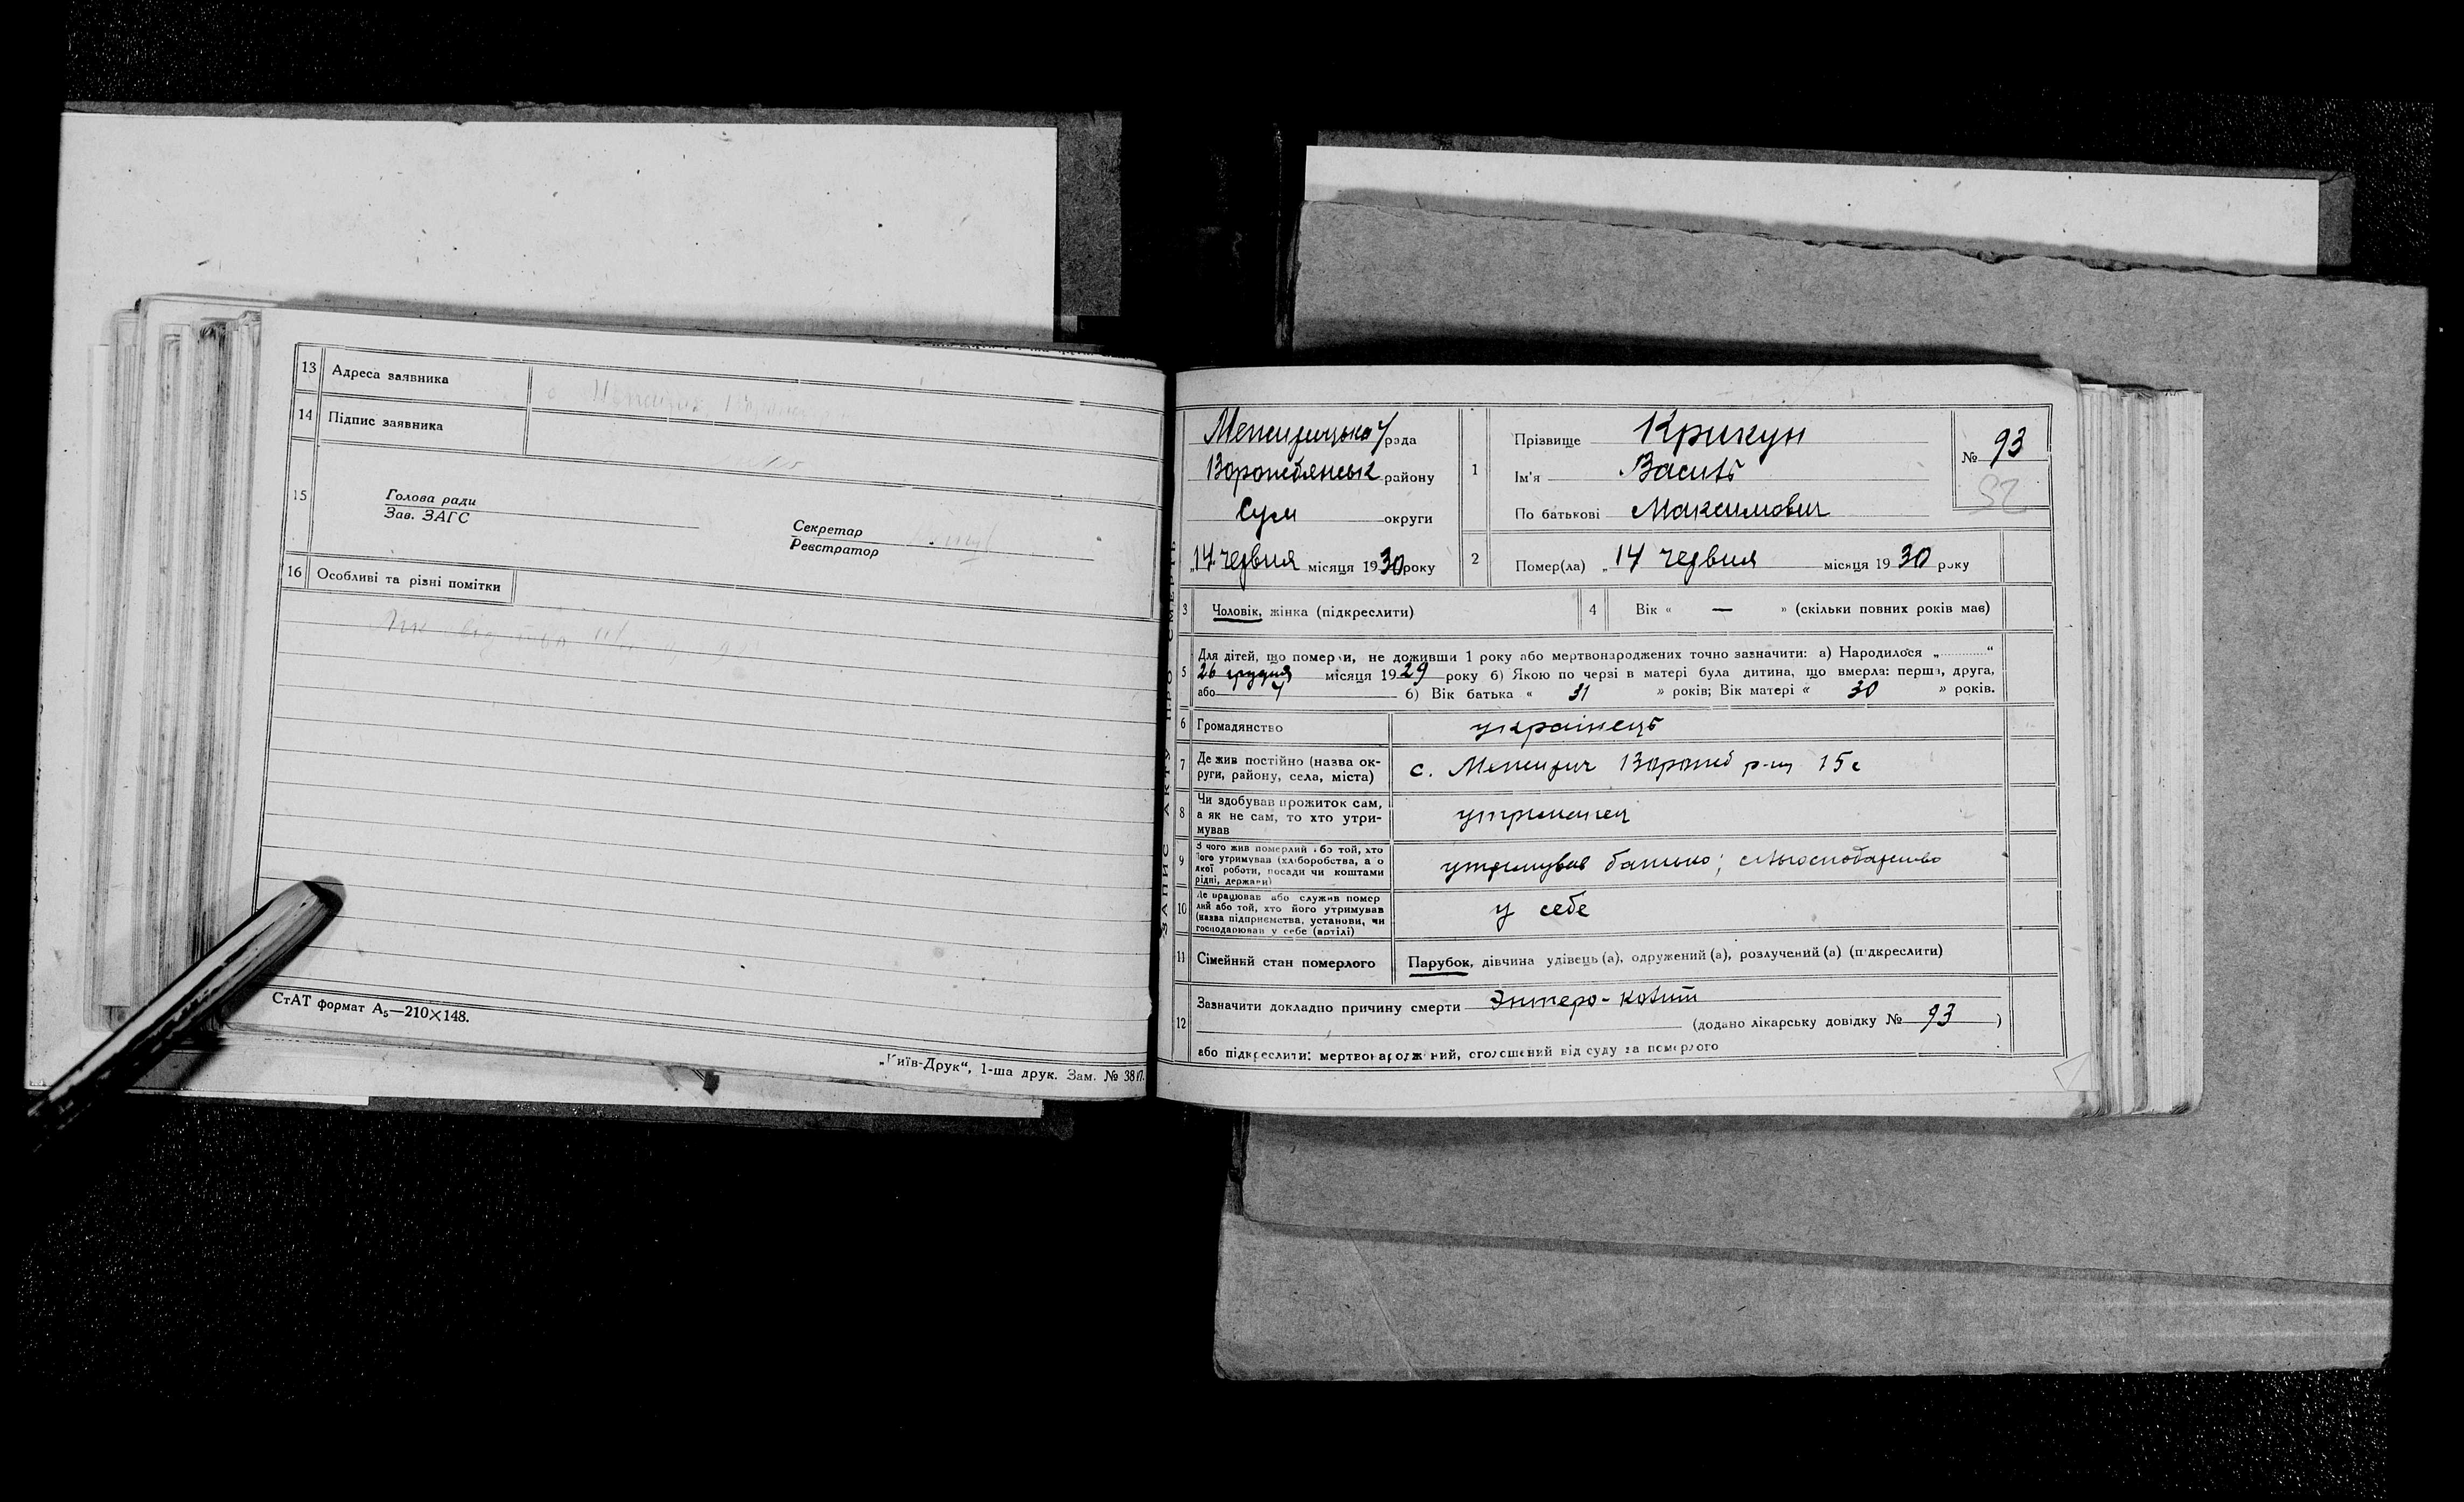 13 Адреса заявника
14 Підпис заявника
15 Голова ради
Зав. ЗАГС
Секретар
Реєстратор
16 Особливі та різні помітки
СтАТ формат А5—210×148.
„Київ-Друк“, 1-ша друк. Зам. № 38
ЗАПИС АКТУ ПРО СМЕРТЬ
рада
району
Сум округи
„14 червня місяця 1930 року
1 Прізвище Крикун
Ім'я Василь
По батькові Максимович
№ 93
52
2 Помер(ла) „14 червня місяця 1930 року
3 Чоловік, жінка (підкреслити)
4 Вік « — » (скільки повних років має)
5 Для дітей, що померли, не доживши 1 року або мертвонароджених точно зазначити: а) Народилося „ “
26 грудня місяця 1929 року б) Якою по черзі в матері була дитина, що вмерла: перша, друга,
або 4 б) Вік батька « 31 » років; Вік матері « 30 » років.
6 Громадянство українець
7 Де жив постійно (назва округи, району, села, міста) с.
8 Чи здобував прожиток сам, а як не сам, то хто утримував утриманец
9 З чого жив померлий або той, хто його утримував (хліборобства, а о якої роботи, посади чи коштами рідні, держави) утримував батько;
10 Де працював або служив померлий або той, хто його утримував (назва підприємства, установи, чи господарював у себе (артілі) у себе
11 Сімейний стан померлого Парубок, дівчина удівець(а), одружений(а), розлучений(а) (підкреслити)
12 Зазначити докладно причину смерти Энтеро-колит
(додано лікарську довідку № 93 )
або підкреслити: мертвонароджений, оголошений від суду за померлого